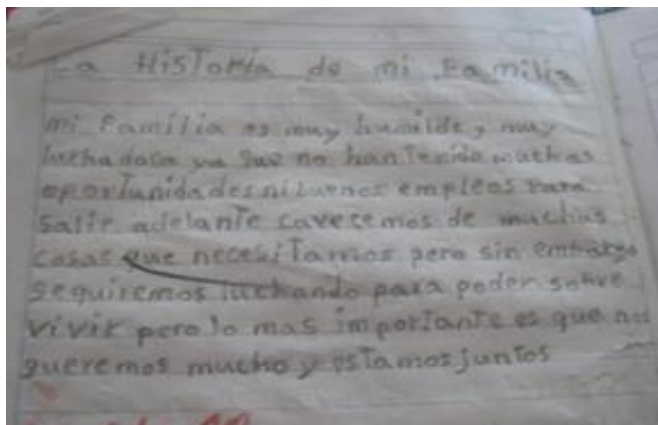 La Historia de mi Familia
mi Familia es muy humilde y muy
luchadora ya que no han tenido muchas
oportunidades ni buenos empleos para
salir adelante carecemos de muchas
cosas que necesitamos pero sin embargo
seguiremos luchando para poder sobre
vivir pero lo mas importante es que nos
queremos mucho y estamos juntos